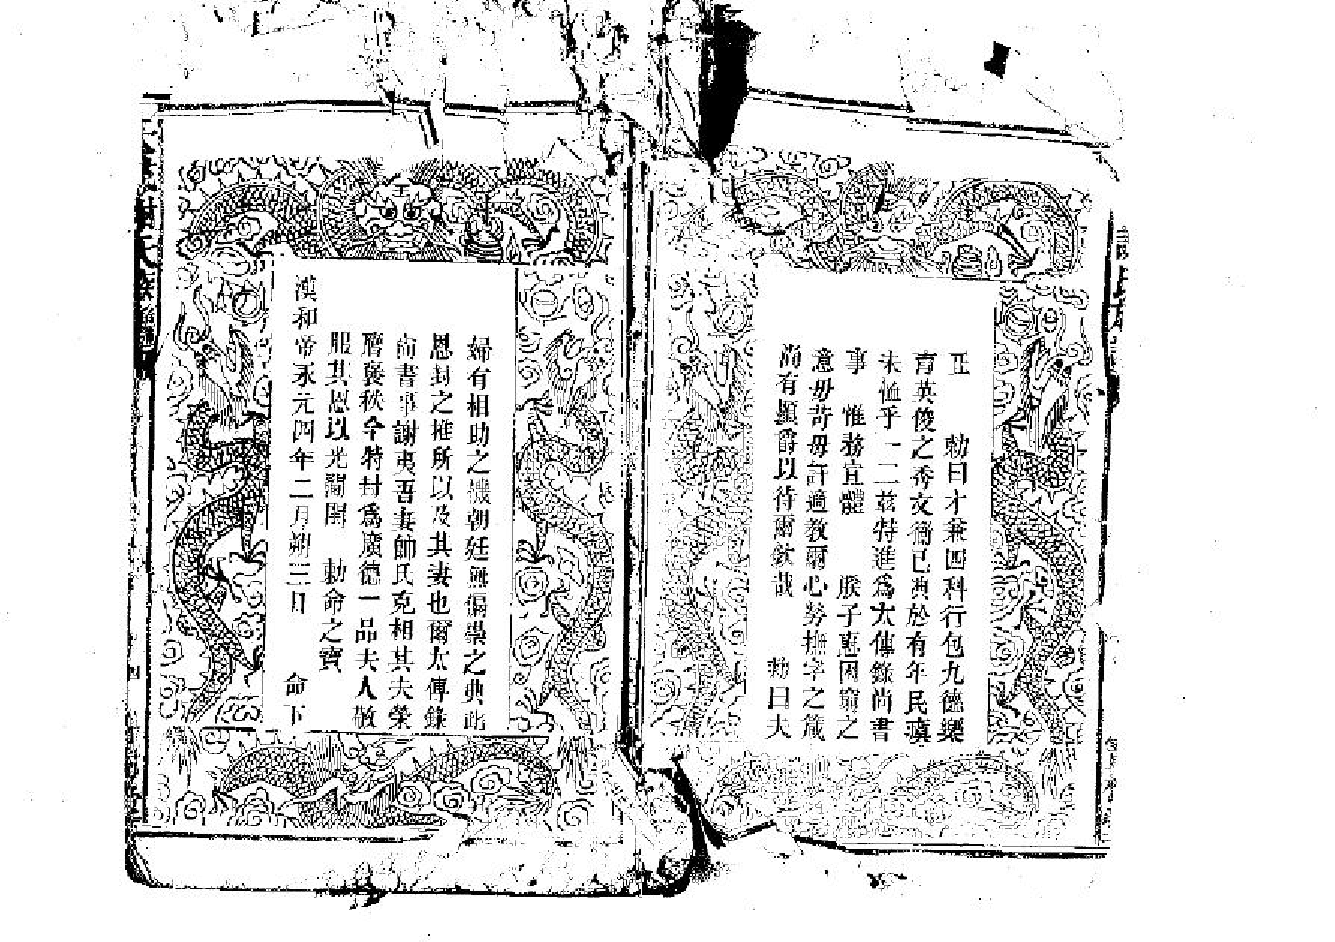 勅曰才兼四科行包九德樂
育英俊之秀文衡已典於有年民瘼
未恤乎一二茲特進為大傅錄尚書
事 惟務宜體 朕子惠困窮之
意毋苛毋訐適教爾心勞撫字之箴
尚有顯爵以待爾欽哉 勅曰夫
婦有相助之機朝廷無偏崇之典此
恩封之推所以及其妻也爾太傅錄
尚書事謝夷吾妻帥氏克相其夫榮
膺褒秩今特封為廣德一品夫人敬
服其恩以光閫闈 勅命之寶
漢和帝永元四年二月朔三日 命下
謝氏族